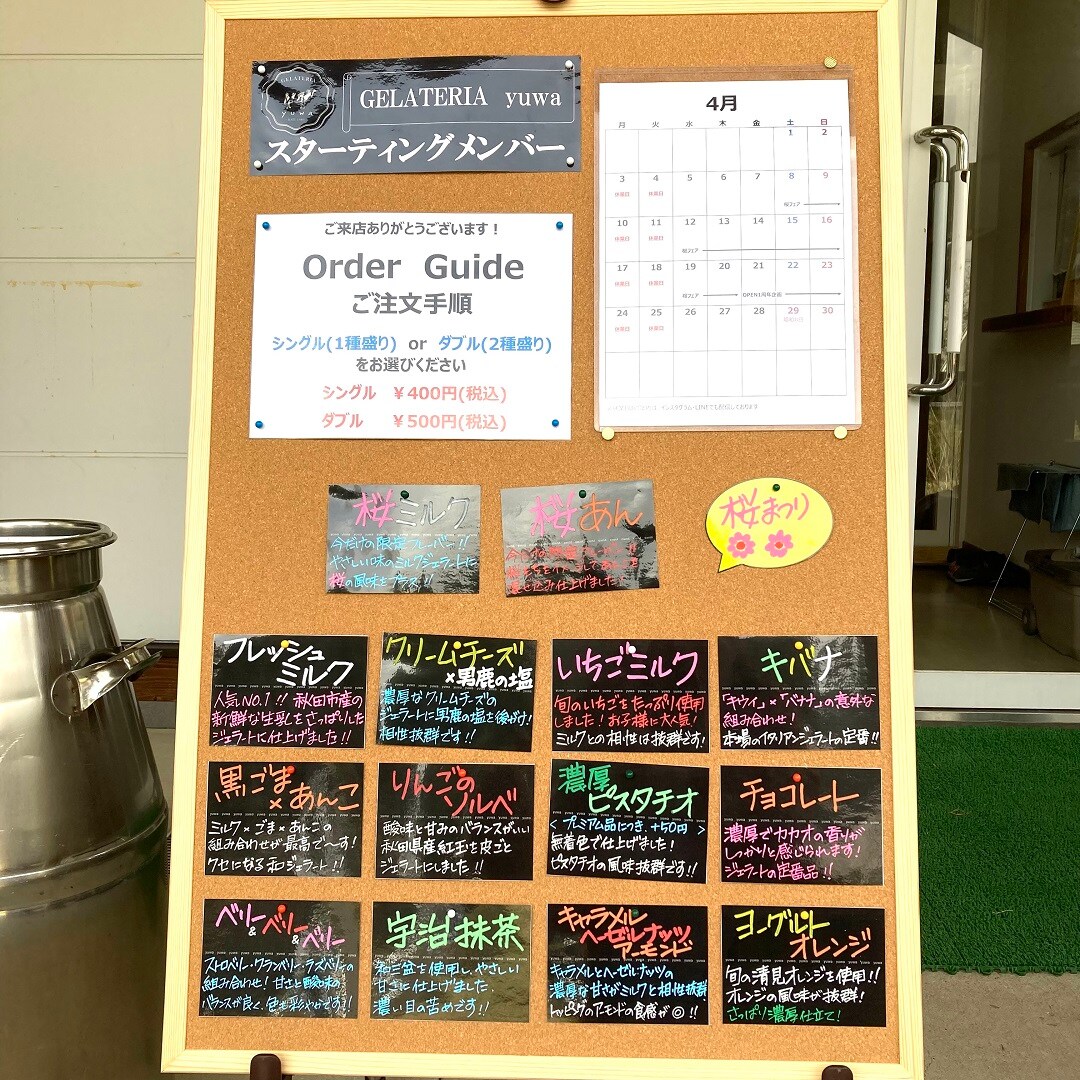 GELATERIA
yuwa
GELATERIA yuwa
スターティングメンバー
ご来店ありがとうございます！
Order Guide
ご注文手順
シングル(1種盛り) or ダブル(2種盛り)
をお選びください
シングル ￥400円(税込)
ダブル ￥500円(税込)
4月
月 火 水 木 金 土 日
1 2
3 4 5 6 7 8 9
休業日 休業日 桜フェア
10 11 12 13 14 15 16
休業日 休業日 桜フェア
17 18 19 20 21 22 23
休業日 休業日 桜フェア OPEN1周年企画
24 25 26 27 28 29 30
休業日 休業日 昭和の日
桜ミルク
今だけの限定フレーバー!!
やさしい味のミルクジェラートに
桜の風味をプラス!!
桜あん
桜まつり
フレッシュ
ミルク
人気NO.1!! 秋田市産の
新鮮な生乳をさっぱりした
ジェラートに仕上げました!!
クリームチーズ
×男鹿の塩
濃厚なクリームチーズの
ジェラートに男鹿の塩を後がけ!
相性抜群です!!
いちごミルク
旬のいちごをたっぷり使用
しました!お子様に大人気!
ミルクとの相性は抜群です!
キバナ
「キウイ」×「バナナ」の意外な
組み合わせ!
本場のイタリアンジェラートの定番!!
黒ごま
×あんこ
ミルク×ごま×あんこの
組み合わせが最高で〜す!
クセになる和ジェラート!!
りんごの
ソルベ
酸味と甘みのバランスがいい
秋田県産紅玉を皮ごと
ジェラートにしました!!
濃厚
ピスタチオ
<プレミアム品につき、+50円>
無着色で仕上げました!
ピスタチオの風味抜群です!!
チョコレート
濃厚でカカオの香りが
しっかりと感じられます!
ジェラートの定番品!!
ベリー
&ベリー
&ベリー
ストロベリー・クランベリー・ラズベリーの
組み合わせ!甘さと酸味の
バランスが良く、色も彩やかです!
宇治抹茶
和三盆を使用し、やさしい
甘さに仕上げました。
濃い目の苦めです!!
キャラメル
ヘーゼルナッツ
アーモンド
キャラメルとヘーゼルナッツの
濃厚な甘さがミルクと相性抜群
トッピングのアーモンドの食感が◎!!
ヨーグルト
オレンジ
旬の清見オレンジを使用!!
オレンジの風味が抜群!
さっぱり濃厚仕立て!